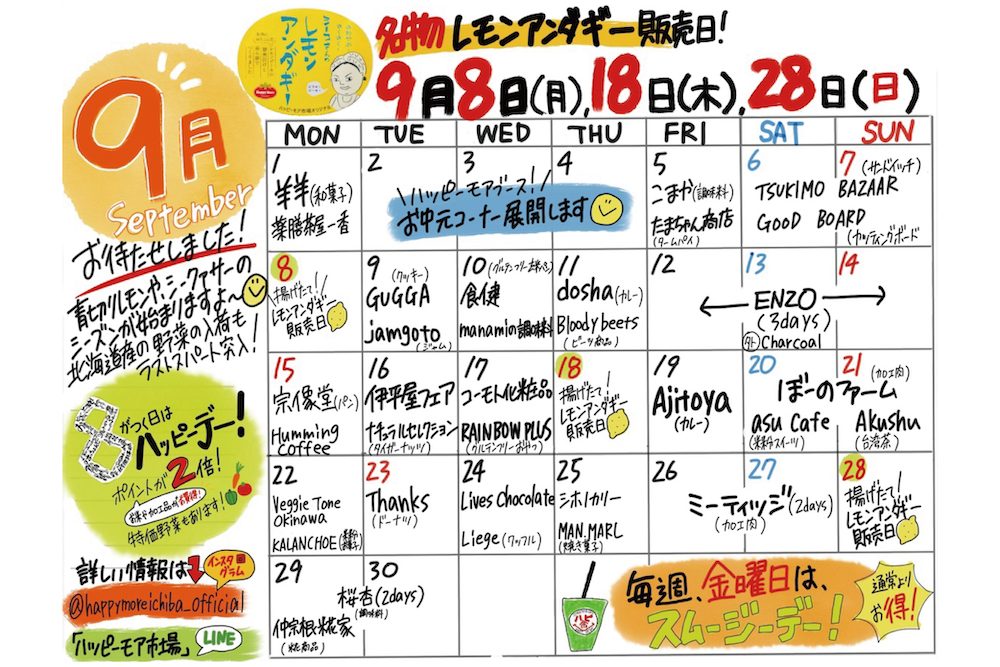 名物 レモンアンダギー販売日!
9月8日(月),18日(木),28日(日)
レモン
アンダギー
9月
September
お待たせしました!
青切りレモンや、シークァサーの
シーズンが始まりますよ〜
北海道産の野菜の入荷も
ラストスパート突入!
8がつく日は
ハッピーデー!
ポイントが2倍!
お米や加工品がお買得!
特価野菜もあります!
詳しい情報は
インスタグラム
@happymoreichiba_official
「ハッピーモア市場」 LINE
MON TUE WED THU FRI SAT SUN
1
羊羊(和菓子)
薬膳茶屋一香
2
3
4
ハッピーモアブース!
お中元コーナー展開します
5
こまや(調味料)
たまちゃん商店
(タームパイ)
6
7 (サンドイッチ)
TSUKIMO BAZAAR
GOOD BOARD
(カッティングボード
8
揚げたて!
レモンアンダギー
販売日
9 (クッキー)
GUGGA
jamgoto
(ジャム)
10
食健
manaminの調味料
11
dosha(カレー)
Bloody beets
(ビーツ商品)
12
13
14
ENZO
(3days)
Charcoal
15
宗像堂(パン)
Humming
coffee
16
伊平屋フェア
ナチュラルセレクション
(タイガーナッツ)
17
コーモト化粧品
RAINBOW PLUS
(グルテンフリーおやつ)
18
揚げたて!
レモンアンダギー
販売日
19
Ajitoya
(カレー)
20
21 (加工肉)
ぼーのファーム
asu Cafe
Akushu
(台湾茶)
22
Veggie Tone
Okinawa
KALANCHOE
23
Thanks
(ドーナツ)
24
Lives Chocolate
Liege(ワッフル)
25
シホノカリー
MAN.MARL
(焼き菓子)
26
27
ミーティッジ(2days)
(加工肉)
28
揚げたて!
レモンアンダギー
販売日
29
30
桜杏(2days)
(調味料)
仲宗根糀家
(糀商品)
毎週、金曜日は、
スムージーデー!
通常より
お得!